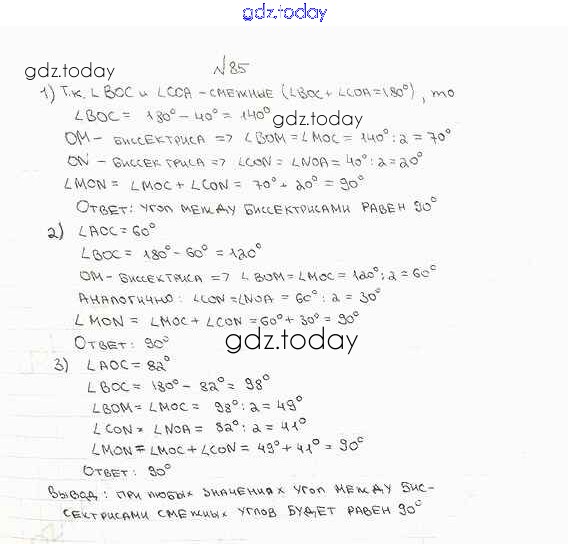 gdz.today
№85
gdz.today
1) Т.к. ∠BOC и ∠COA - смежные (∠BOC + ∠COA = 180°), то
∠BOC = 180° - 40° = 140°
gdz.today
OM - биссектриса => ∠BOM = ∠MOC = 140° : 2 = 70°
ON - биссектриса => ∠CON = ∠NOA = 40° : 2 = 20°
∠MON = ∠MOC + ∠CON = 70° + 20° = 90°
Ответ: угол между биссектрисами равен 90°
2) ∠AOC = 60°
∠BOC = 180° - 60° = 120°
OM - биссектриса => ∠BOM = ∠MOC = 120° : 2 = 60°
Аналогично: ∠CON = ∠NOA = 60° : 2 = 30°
∠MON = ∠MOC + ∠CON = 60° + 30° = 90°
Ответ: 90°
gdz.today
3) ∠AOC = 82°
∠BOC = 180° - 82° = 98°
∠BOM = ∠MOC = 98° : 2 = 49°
∠CON = ∠NOA = 82° : 2 = 41°
∠MON = ∠MOC + ∠CON = 49° + 41° = 90°
Ответ: 90°
Вывод: при любых значениях угол между бис-
сектрисами смежных углов будет равен 90°